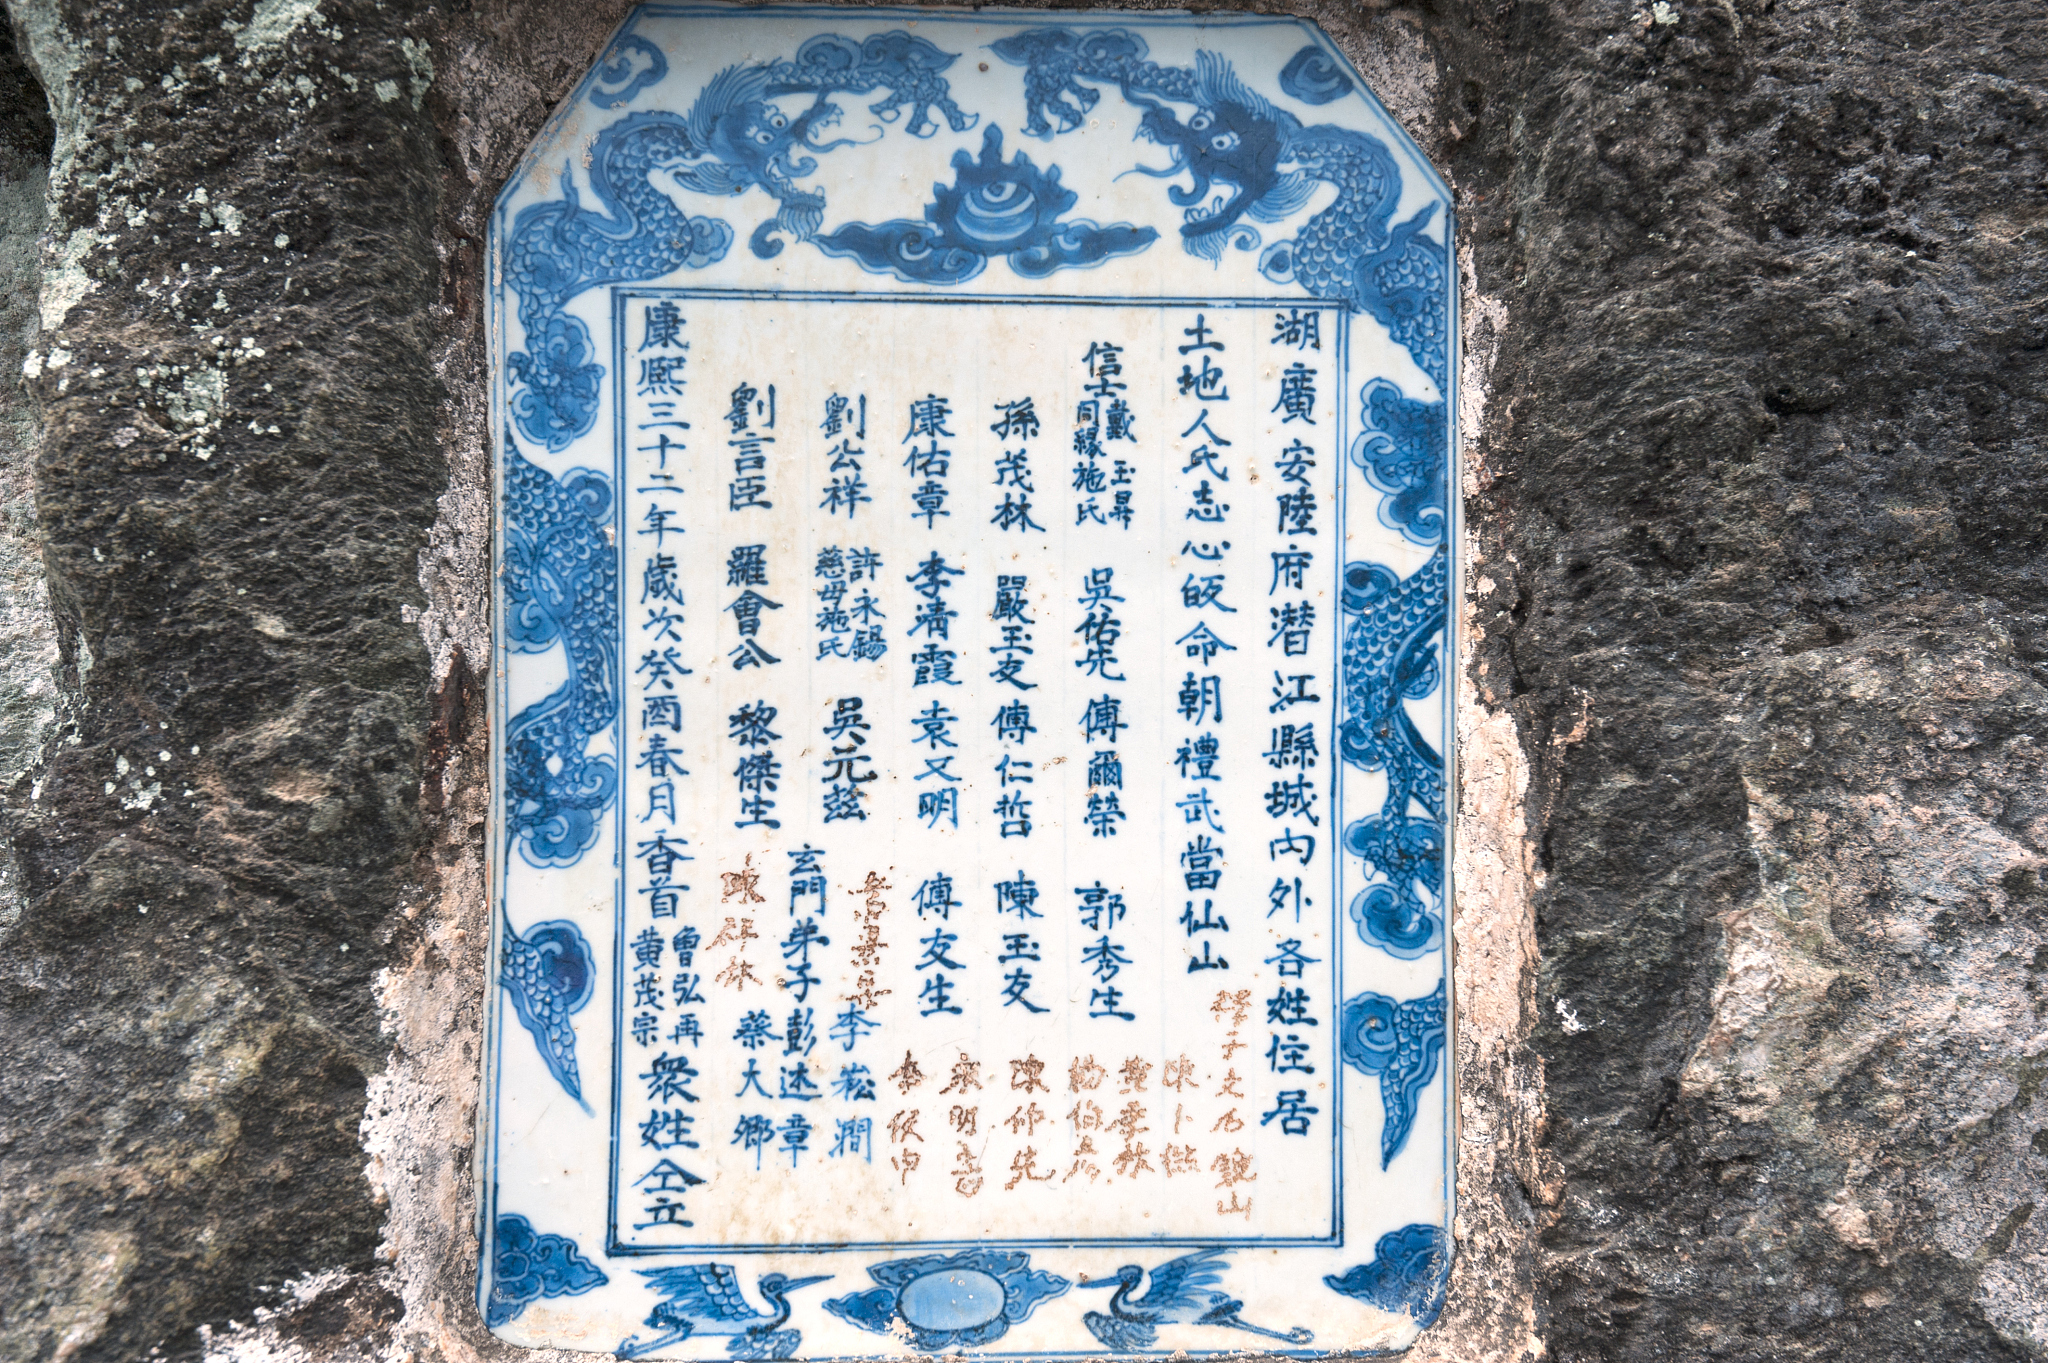 湖廣安陸府潛江縣城內外各姓住居
土地人氏志心皈命朝禮武當仙山
信士戴玉昇 吳佑先 傅爾榮 郭秀生
同緣施氏
孫茂林 嚴玉友 傅仁哲 陳玉友
康佑章 李清霞 袁又明 傅友生
劉公祥 許永錫 吳元茲 李崧澗
慈母施氏
玄門弟子彭述章
劉言臣 羅會公 黎傑生 蔡大鄉
康熙三十二年歲次癸酉春月香首 魯弘再 眾姓仝立
黃茂宗
陳卜
陳仲先
明
陳祥林